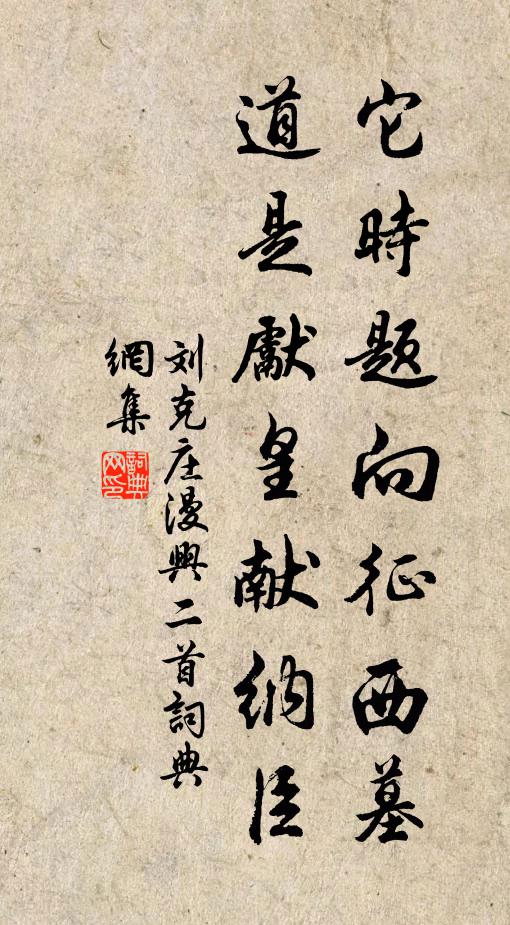 它時题向征西墓
道是獻皇献纳臣
刘克庄漫興二首詞典
網集
詞典
网印